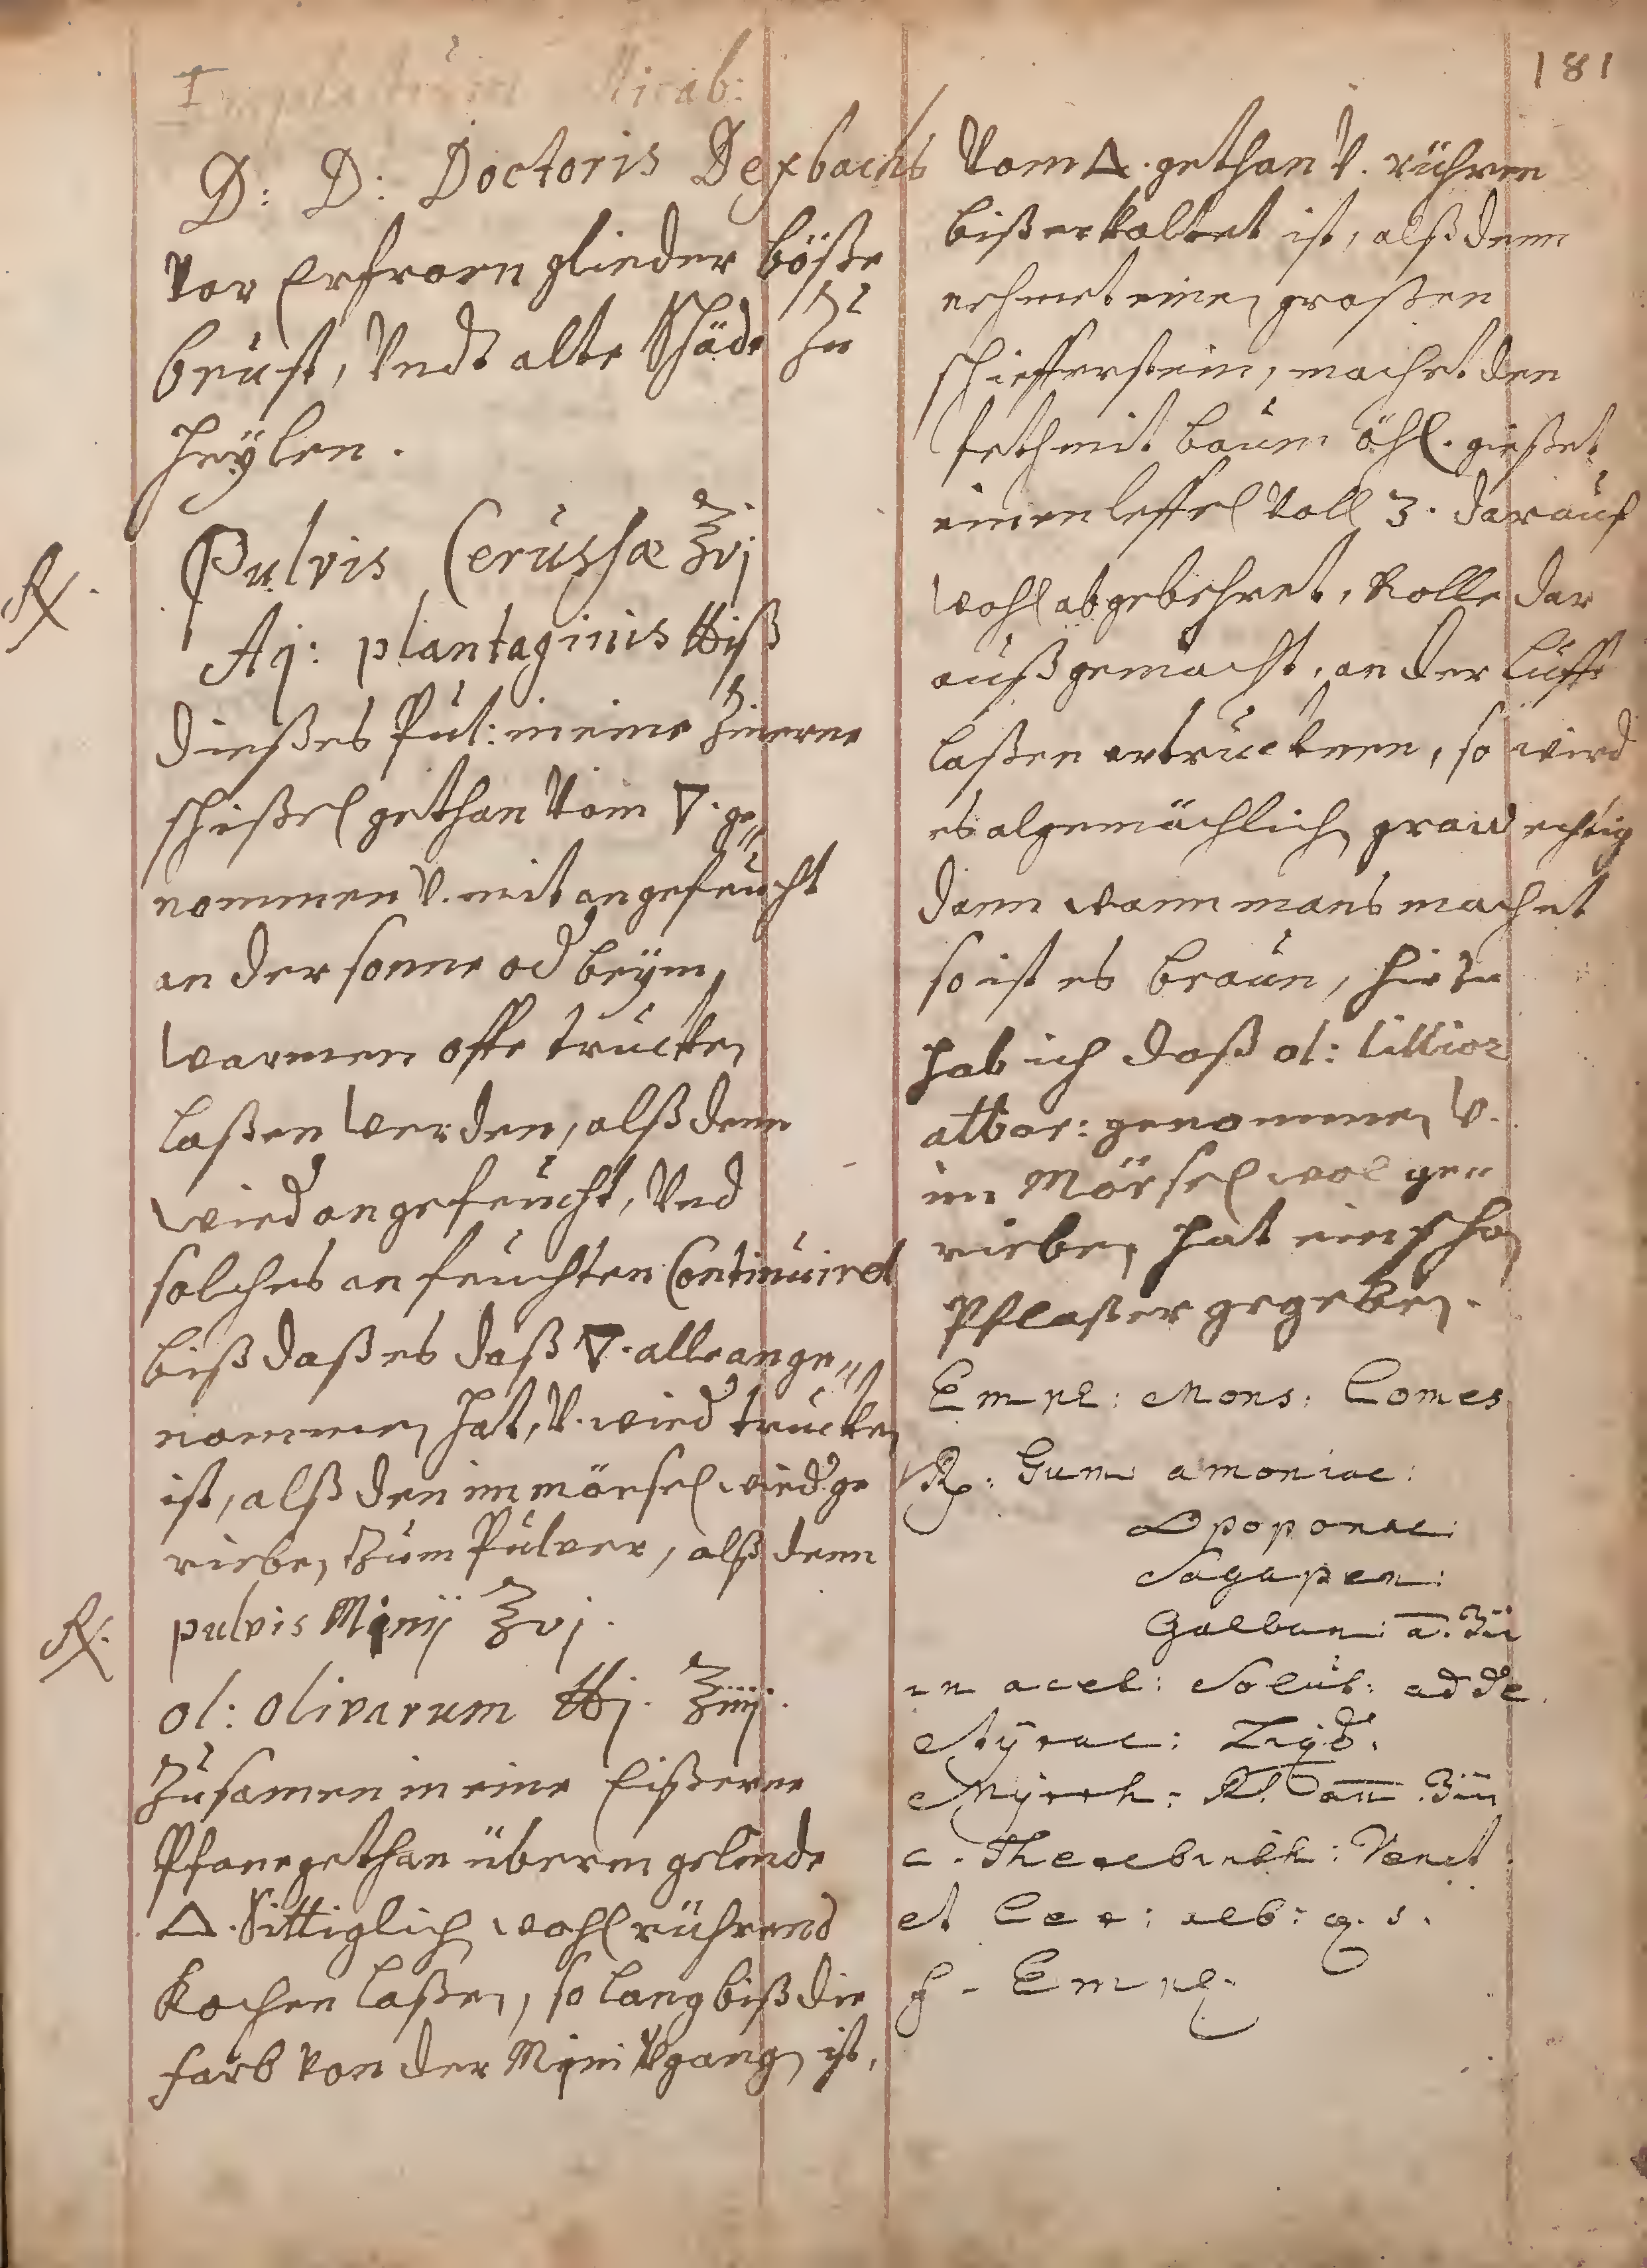 181
Emplastrum Mirab:
D: D: Doctoris Dexbachs
Vor Erfrorn glieder böße
brüst, Vndt alte Schäde zu
heÿlen.
℞. Pulvis Cerüssæ ℥vj
Aq: plantaginis ℔jß
dießes Pul: in eine Zinerne
schißel gethan Vom 🜄. ge„
nommen V. mit angefeücht
an der sonne od beÿm
warmen offe trücken
laßen werden, alß denn
wied angefeücht, Vnd
solches an feüchten Continüiret
biß daß es daß 🜄. alle ange„
nommen hat, V. wied trücken
ist, alß den im mörsel wied ge
rieben zum Pülver, alß denn
℞. pulvis Minij ℥vj.
ol: olivarum ℔j. ℥iiij.
Züsamen in eine Eißerne
Pfane gethan überm gelinde
🜂. Sittiglich wohl rührend
Kochen laßen, so lang biß die
farb von der Mini Vgangen ist,
Vom 🜂. gethan V. rühren
biß erkaltet ist, alß denn
nehmet einen großen
schiefferstein, machet den
feth mit baüm öhl. gießet
einen leffel Voll 3. daraüf
wohl abgekehret, Rolle dar
aüß gemacht, an der lüfft
laßen ertrücknen, so wird
es algemächlich graw echtig
dann wann mans machet
so ist es braün, hirzu
hab ich daß ol: lillior
albor: genommen V.
im Mörsel wol ge„
rieben hat ein schön
Pflaster gegeben.
Empl: Mons: Comes
℞. Gum: amoniac:
Opoponac:
Sagapen:
Galban: a. ℥ii
in acet: Solüt: adde
Stÿrac: Liqd.
Mÿrrh: R. an ℥iii
c. Therebinth: Venet.
et Cer: alb: q. s.
f. Empl.